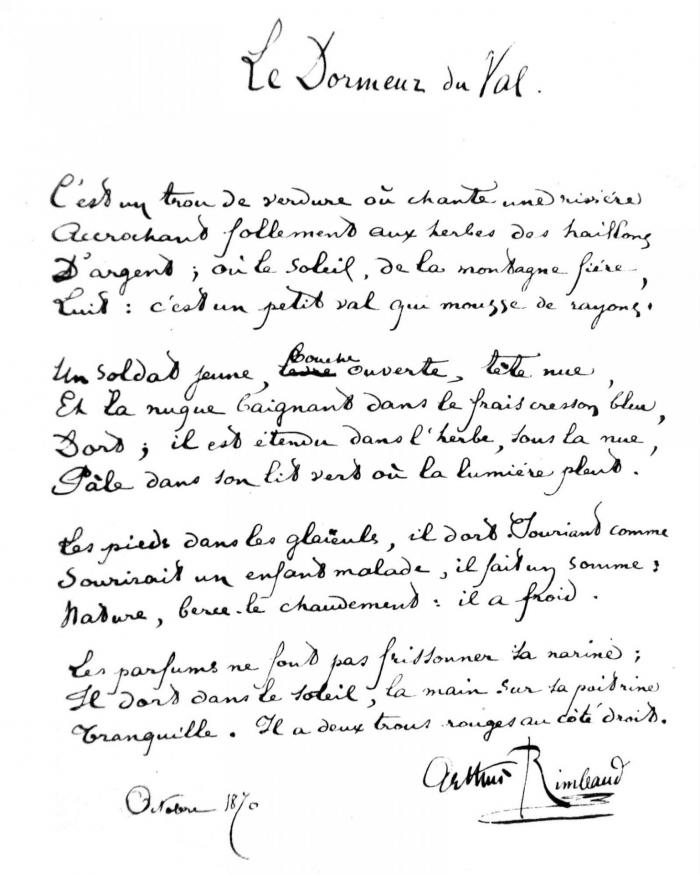 Le Dormeur du Val.
C'est un trou de verdure où chante une rivière
Accrochant follement aux herbes des haillons
D'argent ; où le soleil, de la montagne fière,
Luit : c'est un petit val qui mousse de rayons.
Un soldat jeune, bouche ouverte, tête nue,
Et la nuque baignant dans le frais cresson bleu,
Dort ; il est étendu dans l'herbe, sous la nue,
Pâle dans son lit vert où la lumière pleut.
Les pieds dans les glaïeuls, il dort. Souriant comme
Sourirait un enfant malade, il fait un somme :
Nature, berce-le chaudement : il a froid.
Les parfums ne font pas frissonner sa narine ;
Il dort dans le soleil, la main sur sa poitrine
Tranquille. Il a deux trous rouges au côté droit.
Arthur Rimbaud
Octobre 1870